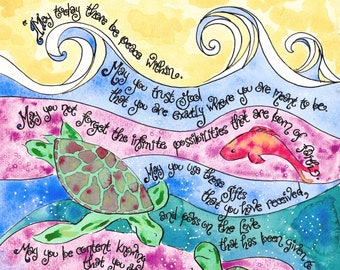 "May today there be peace within.
May you trust God
that you are exactly where you are meant to be.
May you not forget the infinite possibilities that are born of faith.
May you use these gifts
that you have received,
and pass on the Love
that has been given to
May you be content knowing
that you are